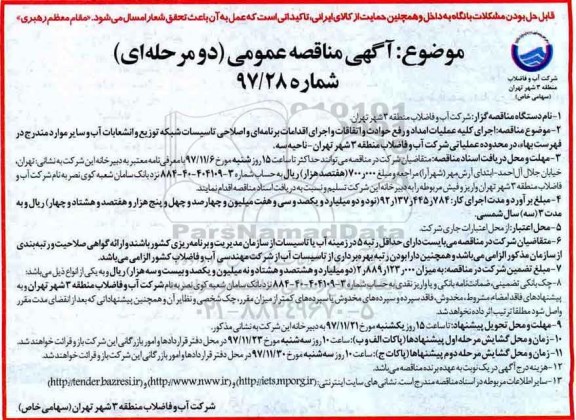 قابل حل بودن مشکلات با نگاه به داخل و همچنین حمایت از کالای ایرانی، تاکیداتی است که عمل به آن باعث تحقق شعار امسال می‌شود. «مقام معظم رهبری»
موضوع: آگهی مناقصه عمومی (دو مرحله‌ای)
شماره ۹۷/۲۸
شرکت آب و فاضلاب
منطقه ۳ شهر تهران
(سهامی خاص)
۱- نام دستگاه مناقصه گزار: شرکت آب و فاضلاب منطقه ۳ شهر تهران
۲- موضوع مناقصه: اجرای کلیه عملیات امداد و رفع حوادث و اتفاقات و اجرای اقدامات برنامه‌ای و اصلاحی تاسیسات شبکه توزیع و انشعابات آب و سایر موارد مندرج در
فهرست بهاء، در محدوده عملیاتی شرکت آب و فاضلاب منطقه ۳ شهر تهران - ناحیه سه.
۳- مهلت و محل دریافت اسناد مناقصه: متقاضیان شرکت در مناقصه می‌توانند حداکثر تا ساعت ۱۵ روز شنبه مورخ ۹۷/۱۱/۶ با معرفی نامه معتبر به دبیرخانه این شرکت به نشانی: تهران،
خیابان جلال آل احمد - ابتدای آرش مهر (شهرآرا) مراجعه و مبلغ ۷۰۰٫۰۰۰ (هفتصد هزار) ریال به حساب شماره ۳-۴۰۴۱۰۹-۴۰-۸۸۴ نزد بانک سامان شعبه کوی نصر به نام شرکت آب و
فاضلاب منطقه ۳ شهر تهران واریز و فیش مربوطه را به دبیرخانه این شرکت تسلیم و نسبت به دریافت اسناد مناقصه اقدام نمایند.
۴- مبلغ برآورد و مدت اجرای کار: ۹۲٫۱۳۷٫۴۴۵٫۷۸۴ (نود و دو میلیارد و یکصد و سی و هفت میلیون و چهارصد و چهل و پنج هزار و هفتصد و هشتاد و چهار) ریال و به
مدت ۳ (سه) سال شمسی.
۵- محل اعتبار: از محل اعتبارات جاری شرکت.
۶- متقاضیان شرکت در مناقصه می‌بایست دارای حداقل رتبه ۵ در زمینه آب یا تاسیسات از سازمان مدیریت و برنامه ریزی کشور باشند و ارائه گواهی صلاحیت و رتبه‌بندی
از سازمان مذکور الزامی می‌باشد و همچنین دارا بودن رتبه بهره برداری از تاسیسات آب از شرکت مهندسی آب و فاضلاب کشور الزامی می‌باشد.
۷- مبلغ تضمین شرکت در مناقصه: به میزان ۲٫۸۸۹٫۱۲۳٫۰۰۰ (دو میلیارد و هشتصد و هشتاد و نه میلیون و یکصد و بیست و سه هزار) ریال و به یکی از انواع ذیل می‌باشد:
۸- چک بانکی تضمینی، ضمانتنامه بانکی و یا واریز نقدی به حساب شماره ۳-۴۰۴۱۰۹-۴۰-۸۸۴ نزد بانک سامان شعبه کوی نصر به نام شرکت آب و فاضلاب منطقه ۳ شهر تهران و به
پیشنهادهای فاقد امضاء، مشروط، مخدوش، فاقد سپرده و سپرده‌های مخدوش یا سپرده‌های کمتر از میزان مقرر، چک شخصی و نظایر آن و همچنین پیشنهاداتی که بعد از انقضای مدت مقرر
واصل شود مطلقا ترتیب اثر داده نخواهد شد.
۹- مهلت و محل تحویل پیشنهاد: تا ساعت ۱۵ روز یکشنبه مورخ ۹۷/۱۱/۲۱ به دبیرخانه این شرکت به نشانی مذکور.
۱۰- زمان و محل گشایش مرحله اول پیشنهادها (پاکات الف و ب): ساعت ۱۰ روز سه شنبه مورخ ۹۷/۱۱/۲۳ در محل دفتر قراردادها و امور بازرگانی این شرکت باز و قرائت خواهند شد.
۱۱- زمان و محل گشایش مرحله دوم پیشنهادها (پاکات ج): ساعت ۱۰ روز سه شنبه مورخ ۹۷/۱۱/۳۰ در محل دفتر قراردادها و امور بازرگانی این شرکت باز و قرائت خواهند شد.
۱۲- هزینه درج آگهی در یک نوبت به عهده برنده مناقصه می‌باشد.
۱۳- سایر اطلاعات مربوطه در اسناد مناقصه مندرج است. نشانی های سایت اینترنتی: (http://iets.mporg.ir) و (http://www.nww.ir) و (http://tender.bazresi.ir)
شرکت آب و فاضلاب منطقه ۳ شهر تهران (سهامی خاص)
ParsNamadData
۰۲۱-۸۸۳۴۹۶۷۰-۵